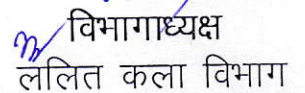 विभागाध्यक्ष
ललित कला विभाग